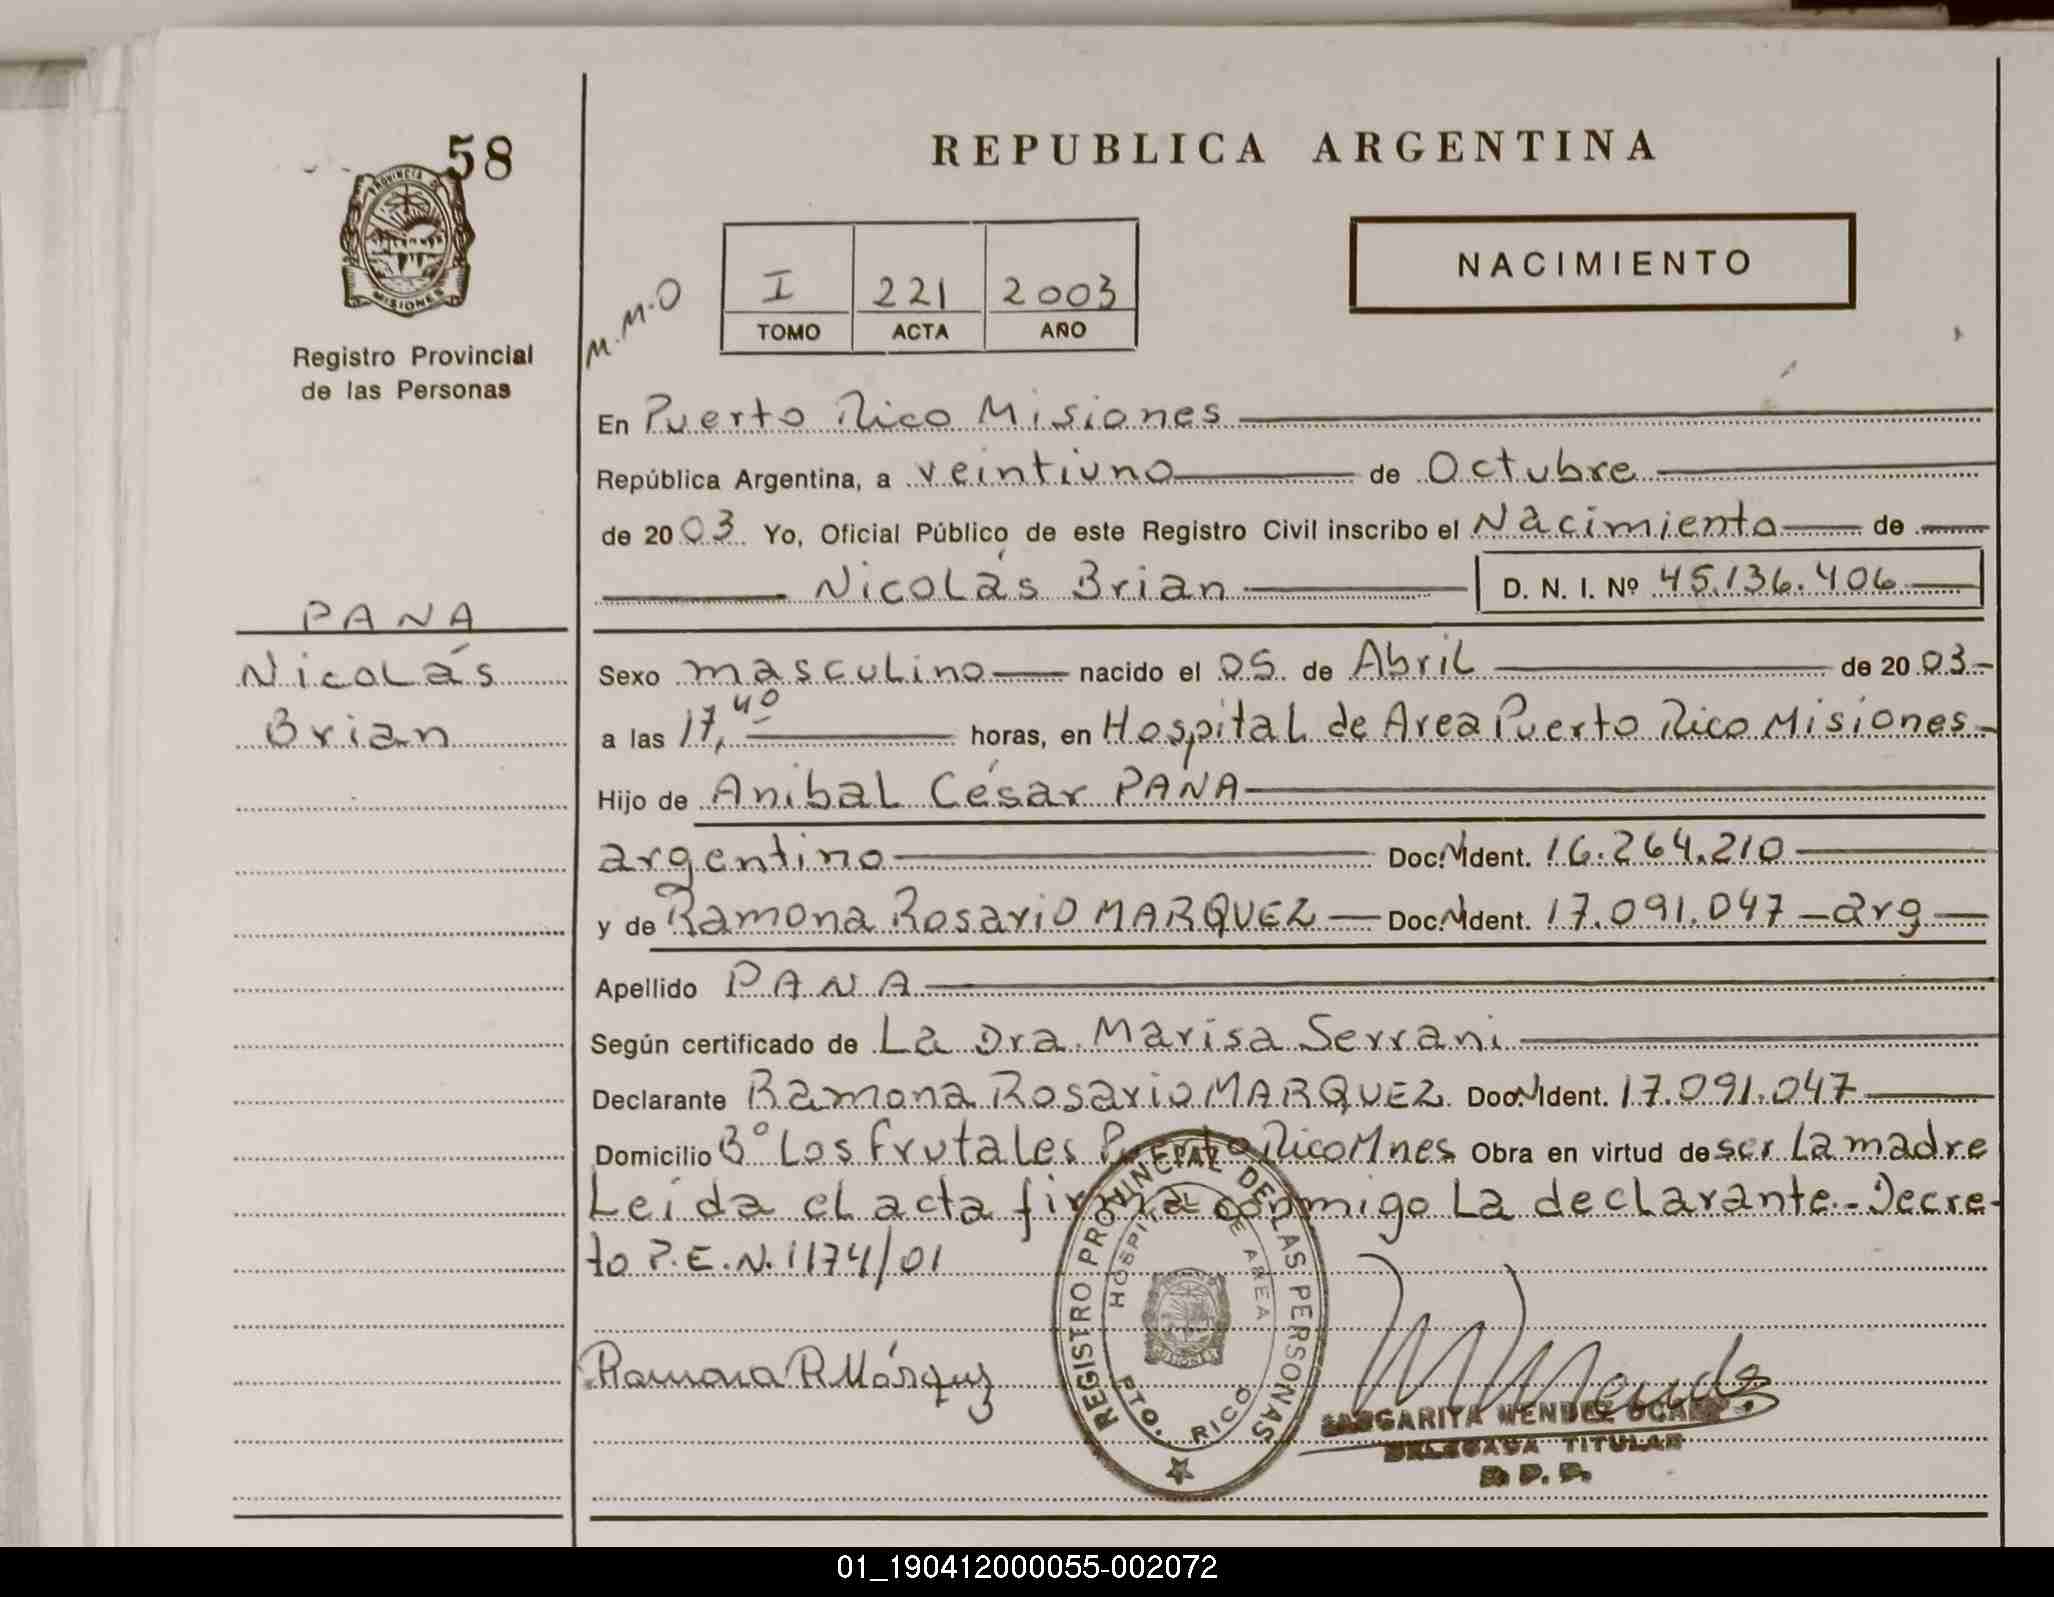 58
PROVINCIA DE
MISIONES
Registro Provincial
de las Personas
REPUBLICA ARGENTINA
NACIMIENTO
M.M.O
I 221 2003
TOMO ACTA AÑO
En Puerto Rico Misiones
República Argentina, a veintiuno de Octubre
de 2003. Yo, Oficial Público de este Registro Civil inscribo el Nacimiento de
Nicolás Brian D. N. I. Nº 45.136.406
PANA
Nicolás
Brian
Sexo masculino nacido el 05 de Abril de 2003.-
a las 17,40 horas, en Hospital de Area Puerto Rico Misiones-
Hijo de Anibal César PANA
argentino Doc. Ident. 16.264.210
y de Ramona Rosario MARQUEZ Doc. Ident. 17.091.047 - arg
Apellido PANA
Según certificado de La Dra. Marisa Serrani
Declarante Ramona Rosario MARQUEZ Doc. Ident. 17.091.047
Domicilio Bº Los Frutales Puerto Rico Mnes Obra en virtud de ser La madre
Leída el acta firma conmigo La declarante.- Decre-
to P.E.N. 1174/01
REGISTRO PROVINCIAL DE LAS PERSONAS
HOSPITAL DE AREA
PTO. RICO
Ramona R Márquez
M Mendez
MARGARITA MENDEZ
DELEGADA TITULAR
01_190412000055-002072